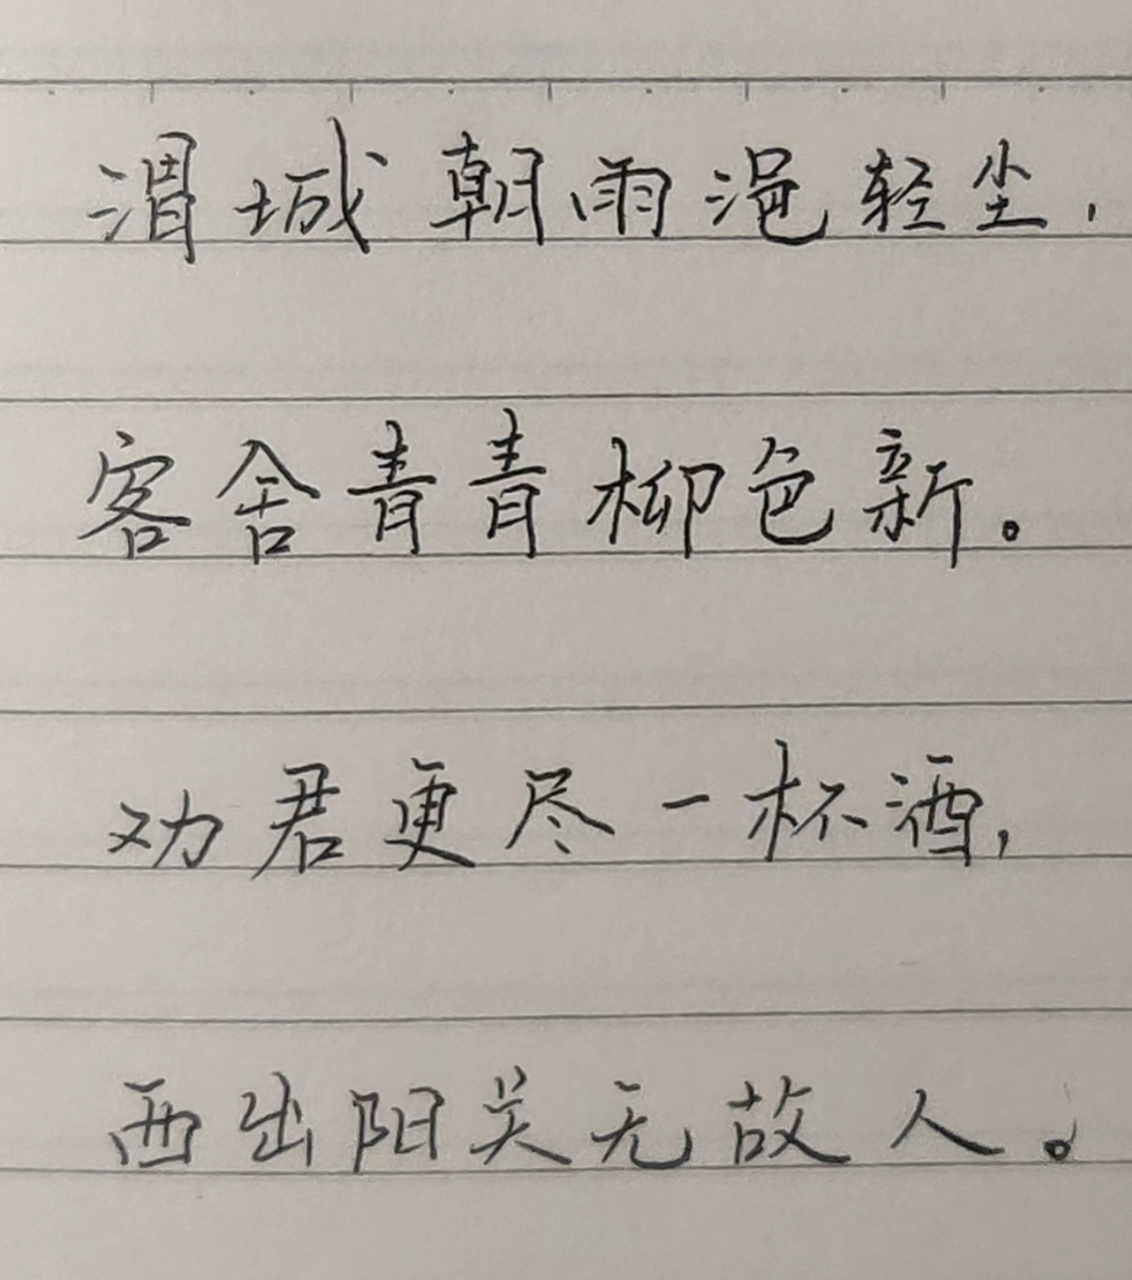 渭城朝雨浥轻尘，
客舍青青柳色新。
劝君更尽一杯酒，
西出阳关无故人。